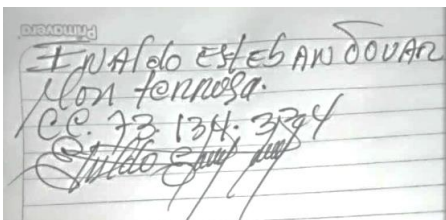 Primavera
INAldo EstEbAN TOVAR
Montenrosa.
CC. 73. 134. 3394